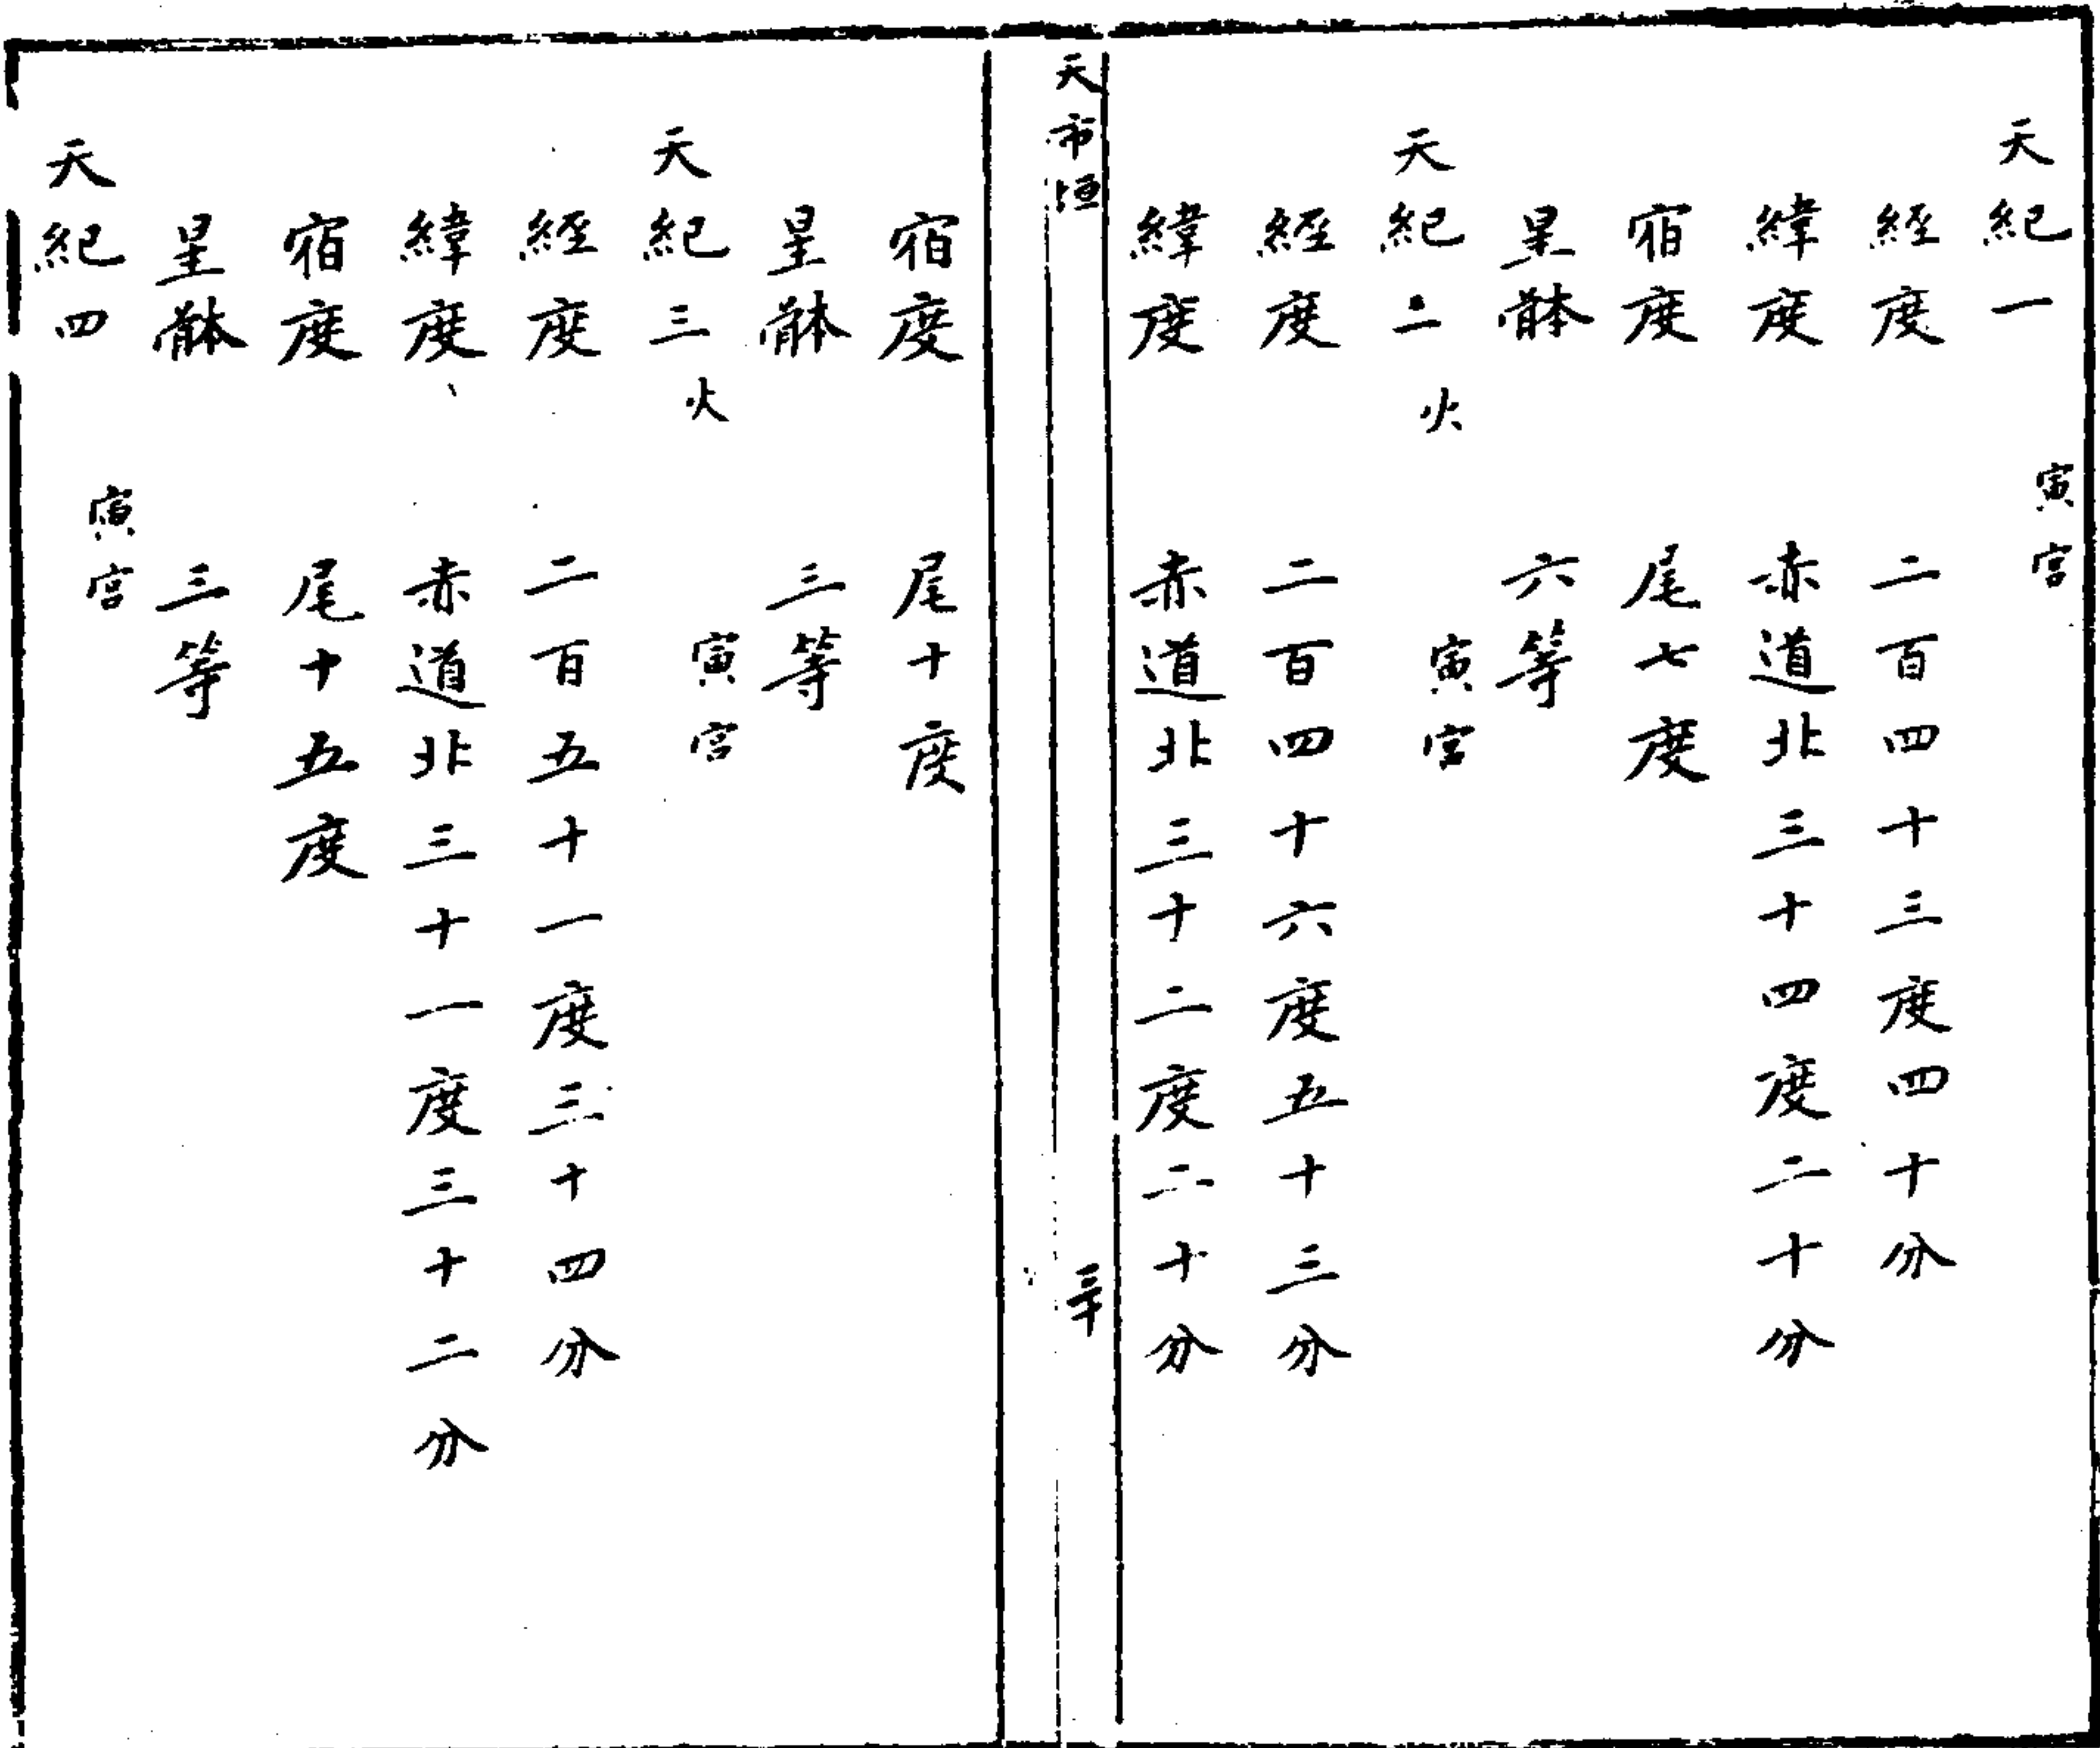 天紀一　寅宮
經度　二百四十三度四十分
緯度　赤道北三十四度二十分
宿度　尾七度
星體　六等
天紀二　火　寅宮
經度　二百四十六度五十三分
緯度　赤道北三十二度二十分
天市垣　三十
宿度　尾十度
星體　三等
天紀三　火　寅宮
經度　二百五十一度三十四分
緯度　赤道北三十一度三十二分
宿度　尾十五度
星體　三等
天紀四　寅宮